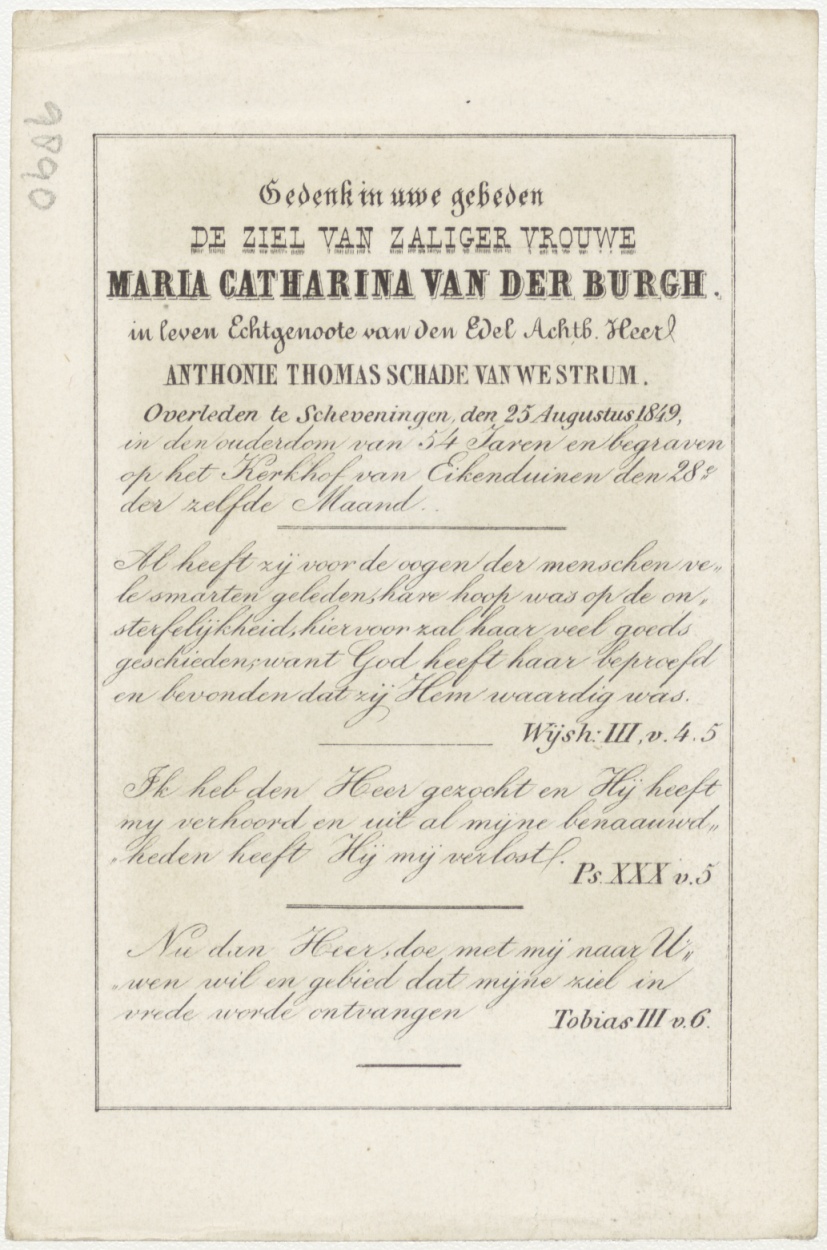 9890
Gedenk in uwe gebeden
DE ZIEL VAN ZALIGER VROUWE
MARIA CATHARINA VAN DER BURGH.
in leven Echtgenoote van den Edel Achtb. Heer
ANTHONIE THOMAS SCHADE VAN WESTRUM.
Overleden te Scheveningen, den 25 Augustus 1849,
in den ouderdom van 54 Jaren en begraven
op het Kerkhof van Eikenduinen den 28e
der zelfde Maand.
Al heeft zij voor de oogen der menschen ve„
le smarten geleden, hare hoop was op de on„
sterfelijkheid, hiervoor zal haar veel goeds
geschieden; want God heeft haar beproefd
en bevonden dat zij Hem waardig was.
Wijsh: III, v. 4. 5
Ik heb den Heer gezocht en Hij heeft
my verhoord en uit al mijne benaauwd„
„heden heeft Hij mij verlost.
Ps. XXX v. 5
Nu dan Heer, doe met mij naar U„
„wen wil en gebied dat mijne ziel in
vrede worde ontvangen
Tobias III v. 6.